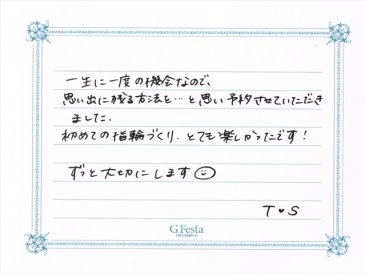 一生に一度の機会なので、
思い出に残る方法と…と思い予約させていただき
ました.
初めての指輪づくり、とても楽しかったです!
ずっと大切にします
T♥S
G.Festa